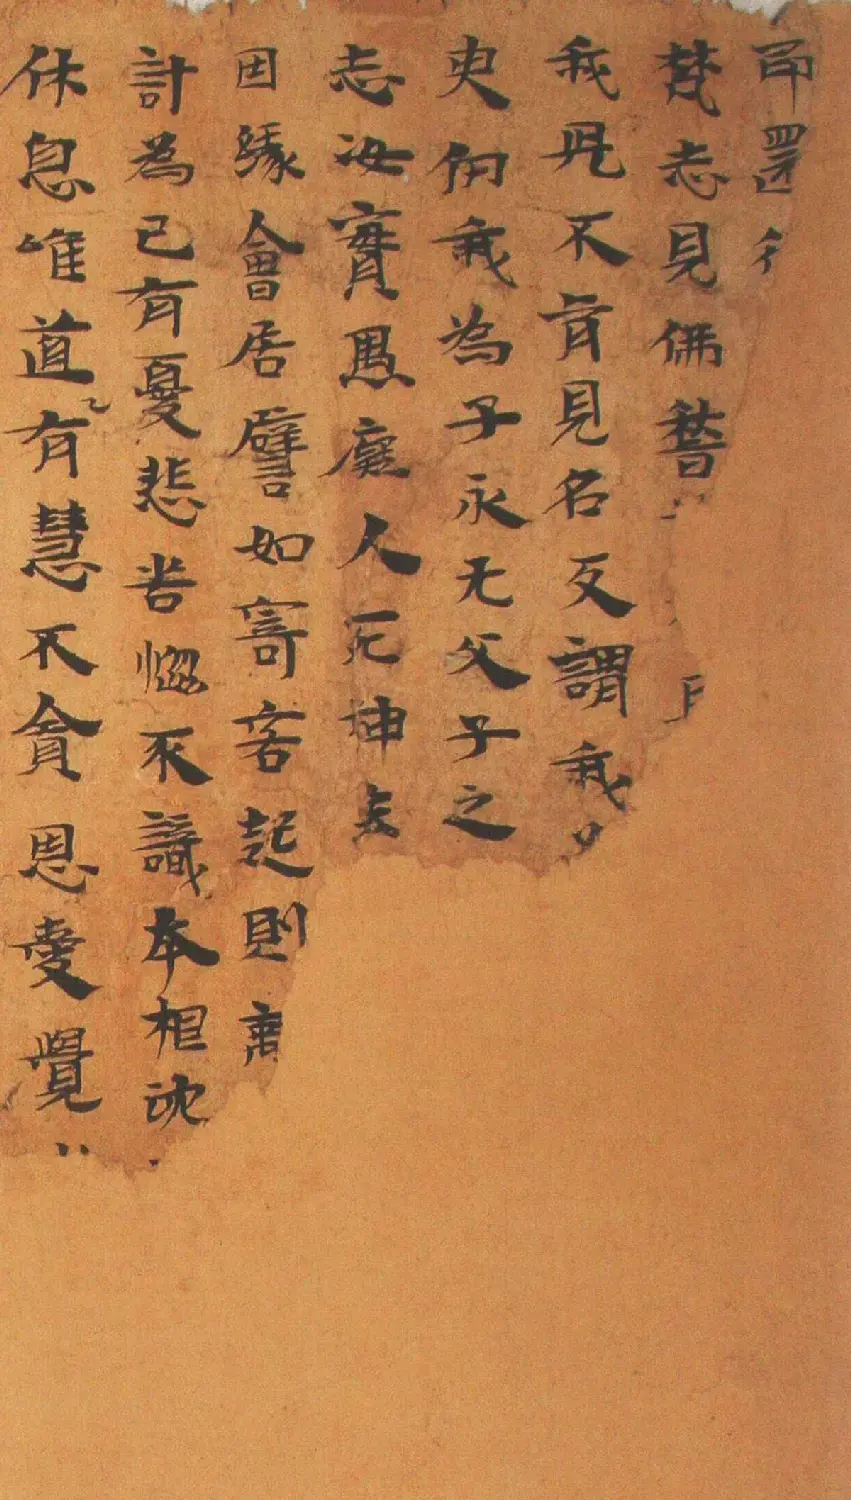 即還
梵志見佛稽
我兒不肯見名反謂我
臾仞我為子永无父子之
志汝實愚人死神去
因緣會居譬如寄客起則離
計為己有憂悲苦惱不識本相沈
休息唯道有慧不貪恩愛覺